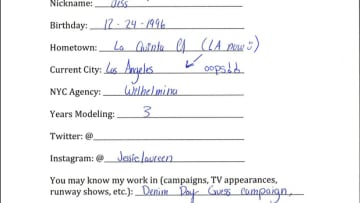 Nickname: Jess
Birthday: 12-24-1996
Hometown: La Quinta CA (LA now
Current City: Los Angeles oops
NYC Agency: Wilhelmina
Years Modeling: 3
Twitter: @
Instagram: @ Jessielaureen
You may know my work in (campaigns, TV appearances,
runway shows, etc.): Denim Day Guess campaign,